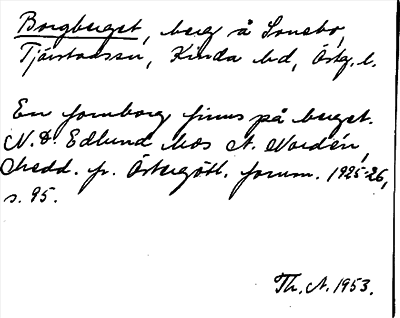 Borgberget, berg å Sonebo,
Tjärstad sn, Kinda hd, Östg. l.
En fornborg finns på berget.
N. D. Edlund hos A. Nordén,
Medd. fr. Östergötl. fornm. 1925-26,
s. 95.
Th. A. 1953.